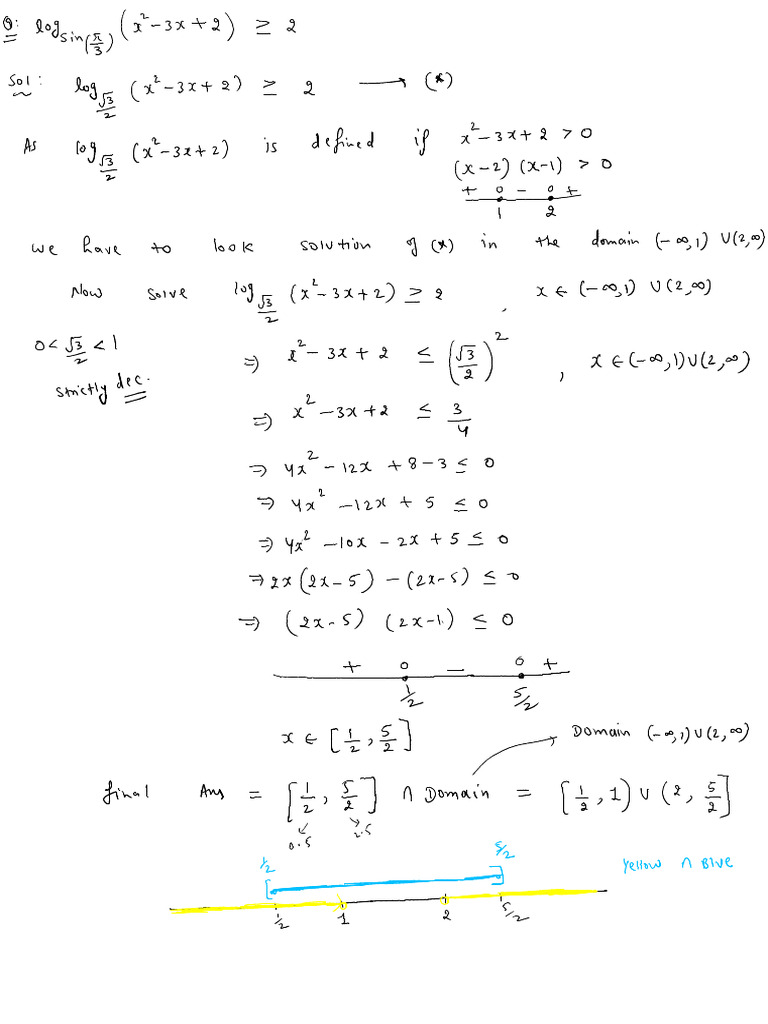 Q: log_{sin(π/3)} (x² - 3x + 2) ≥ 2
Sol: log_{√3/2} (x² - 3x + 2) ≥ 2 ⟶ (*)
As log_{√3/2} (x² - 3x + 2) is defined if x² - 3x + 2 > 0
(x - 2) (x - 1) > 0
+ 0 - 0 +
1 2
we have to look solution of (*) in the domain (-∞, 1) ∪ (2, ∞)
Now solve log_{√3/2} (x² - 3x + 2) ≥ 2 , x ∈ (-∞, 1) ∪ (2, ∞)
0 < √3/2 < 1
strictly dec.
⇒ x² - 3x + 2 ≤ (√3/2)² , x ∈ (-∞, 1) ∪ (2, ∞)
⇒ x² - 3x + 2 ≤ 3/4
⇒ 4x² - 12x + 8 - 3 ≤ 0
⇒ 4x² - 12x + 5 ≤ 0
⇒ 4x² - 10x - 2x + 5 ≤ 0
⇒ 2x (2x - 5) - (2x - 5) ≤ 0
⇒ (2x - 5) (2x - 1) ≤ 0
+ 0 - 0 +
1/2 5/2
x ∈ [1/2, 5/2]
Domain (-∞, 1) ∪ (2, ∞)
final Ans = [1/2, 5/2] ∩ Domain = [1/2, 1) ∪ (2, 5/2]
0.5 2.5
1/2 5/2
Yellow ∩ Blue
1/2 1 2 5/2